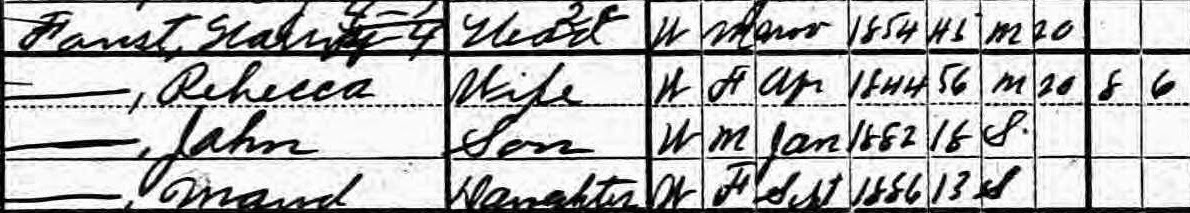 Faust, Harry Head W M Nov 1854 45 M 20
—, Rebecca Wife W F Apr 1844 56 M 20 8 6
—, John Son W M Jan 1882 18 S
—, Maud Daughter W F Sept 1886 13 S